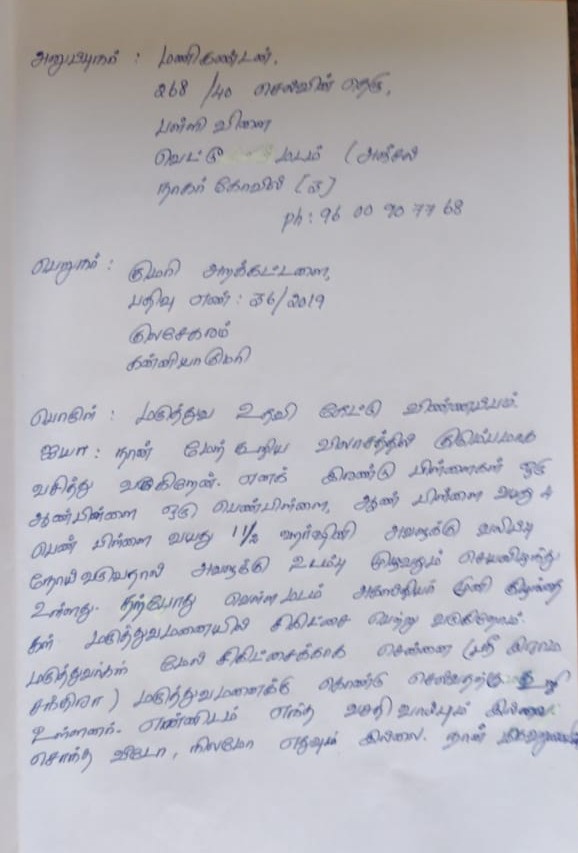 அனுப்புநர் : மணிகண்டன்,
268 /40 செல்வின் தெரு,
பள்ளி விளை
வெட்டு மடம் (அஞ்சல்
நாகர் கோவில் (
ph : 96 00 90 77 68
பெறுநர் : குமரி அறக்கட்டளை,
பதிவு எண் : 36/2019
குலசேகரம்
கன்னியாகுமரி
பொருள் : மருத்துவ உதவி கேட்டு விண்ணப்பம்.
ஐயா : நான் மேற் கூறிய விலாசத்தில் குடும்பமாக
வசித்து வருகிறேன். எனக் இரண்டு பிள்ளைகள் ஒரு
ஆண்பிள்ளை ஒரு பெண்பிள்ளை, ஆண் பிள்ளை வயது 4
பெண் பிள்ளை வயது 1 1/2 ஹர்ஷினி அவளுக்கு வலிப்பு
நோய் வருவதால் அவளுக்கு உடம்பு முழுவதும் செயலிழந்து
உள்ளது. தற்போது வெள்ள மடம் முனி குழந்தை
கள் மருத்துவமனையில் சிகிட்சை பெற்று வருகிறோம்.
மருத்துவர்கள் மேல் சிகிட்சைக்காக சென்னை (ஸ்ரீ
சந்திரா) மருத்துவமனைக்கு கொண்டு செல்வதற்கு கூறி
உள்ளனர். என்னிடம் எந்த வசதி வாய்பும் இல்லை.
சொந்த வீடோ, நிலமோ எதுவும் இல்லை. நான்